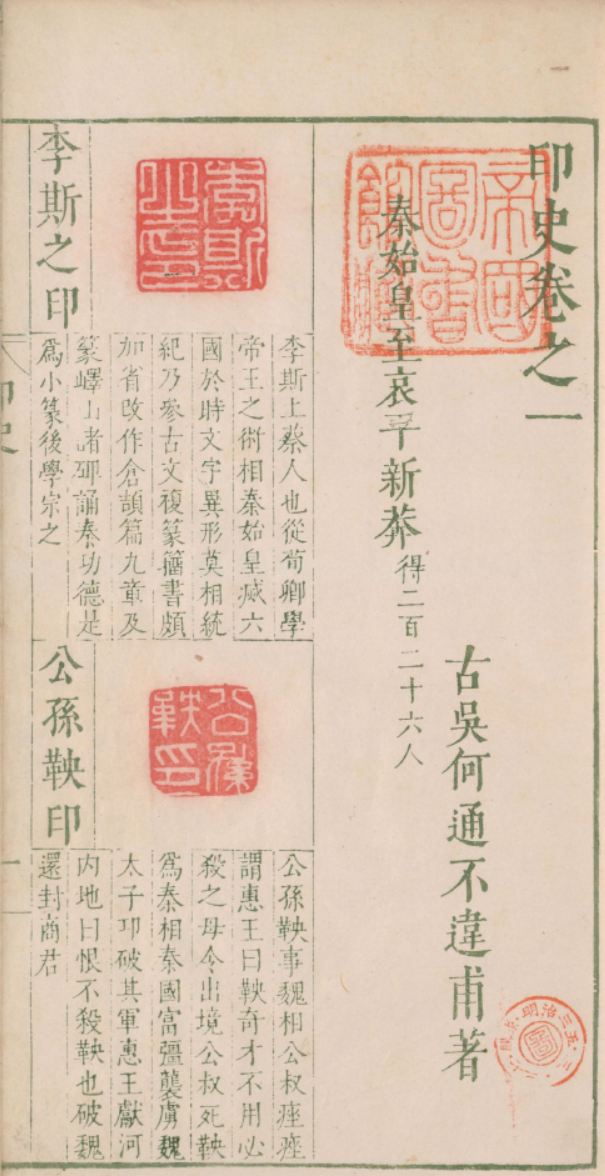 印史卷之一
帝國
圖書
館藏
古吳何通不違甫著
秦始皇至哀平新莽得二百二十六人
明治三五
圖
李斯
之印
李斯之印
李斯上蔡人也從荀卿學
帝王之術相秦始皇滅六
國於時文字異形莫相統
紀乃參古文複篆籀書頗
加省改作倉頡篇九章及
篆嶧山諸碑誦秦功德是
爲小篆後學宗之
公孫
鞅印
公孫鞅印
公孫鞅事魏相公叔痤痤
謂惠王曰鞅奇才不用必
殺之毋令出境公叔死鞅
爲秦相秦國富彊襲虜魏
太子卬破其軍惠王獻河
內地曰恨不殺鞅也破魏
還封商君
印史
一